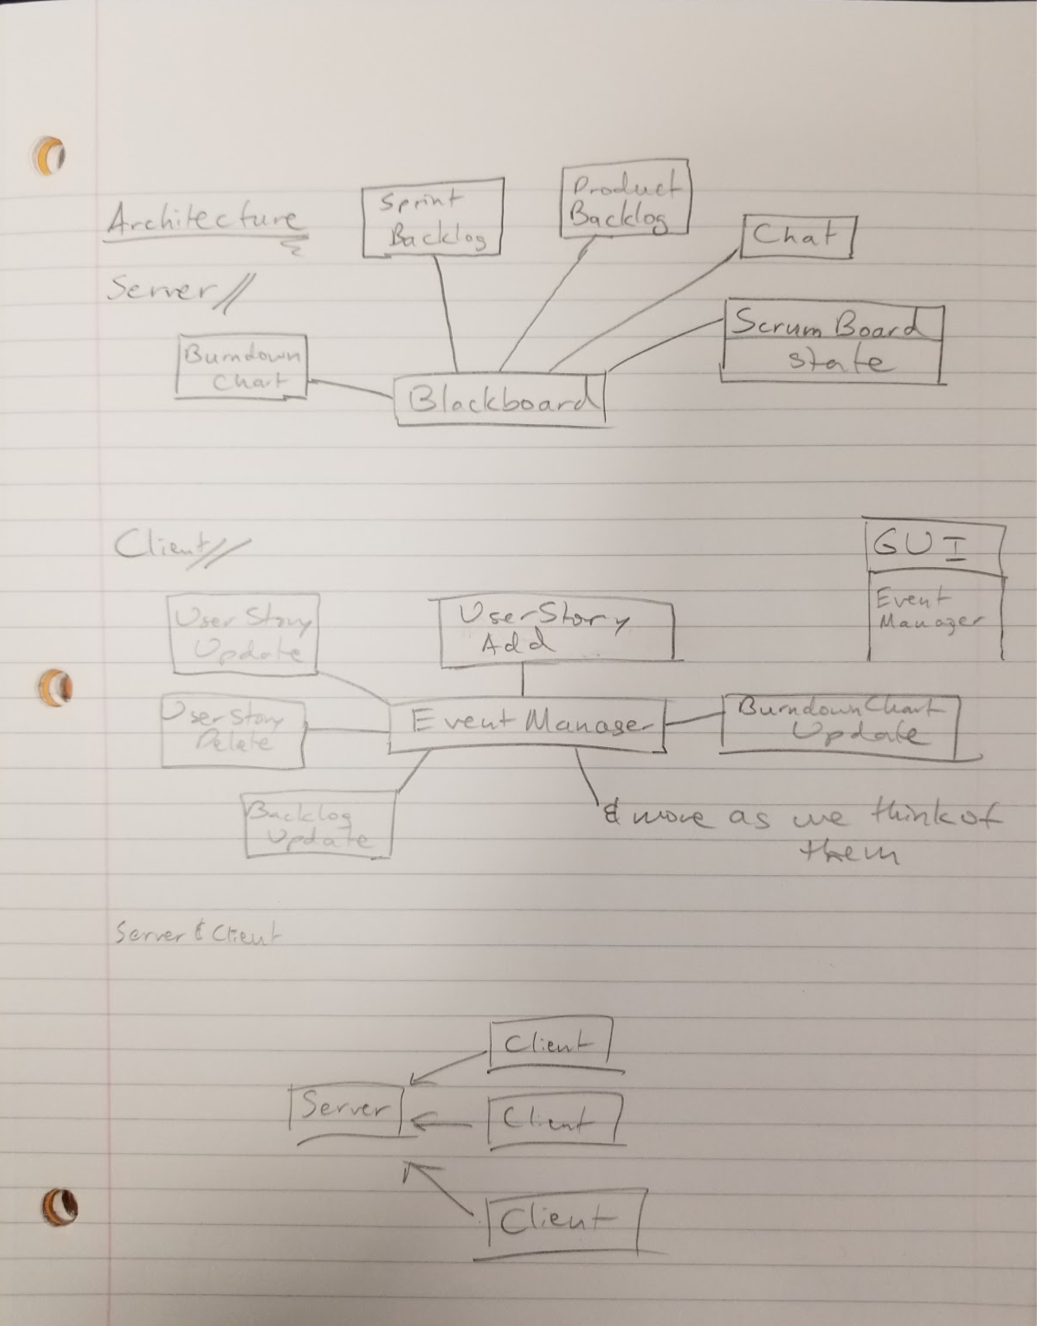 Architecture
Server//
Sprint
Backlog
Product
Backlog
Chat
Scrum Board
State
Burndown
Chart
Blackboard
Client//
GUI
Event
Manager
User Story
Update
UserStory
Add
User Story
Delete
Event Manager
BurndownChart
Update
Backlog
Update
& more as we think of
them
Server & Client
Client
Server
Client
Client